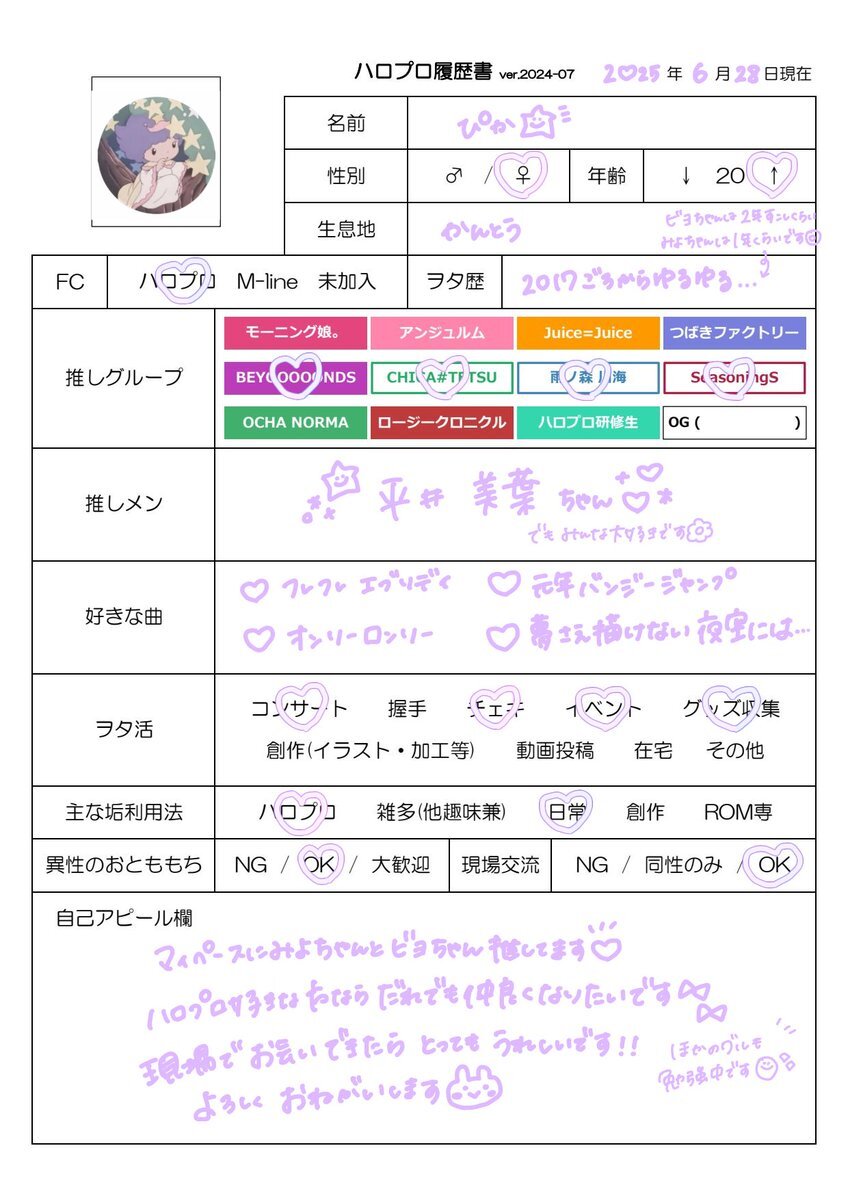 ハロプロ履歴書 ver.2024-07 2025年 6月 28日現在
名前 ぴか
性別 ♂ / ♀ 年齢 ↓ 20 ↑
生息地 かんとう
ビヨちゃんは2年すこしくらい
みよちゃんは1年くらいです
FC ハロプロ M-line 未加入 ヲタ歴 2017ごろからゆるゆる...
推しグループ
モーニング娘。 アンジュルム Juice=Juice つばきファクトリー
BEYOOOOONDS CHICA#TETSU 雨ノ森 川海 SeasoningS
OCHA NORMA ロージークロニクル ハロプロ研修生 OG ( )
推しメン 平井 美葉 ちゃん
でも みんな大好きです
好きな曲
フレフレ エブリデイ 元年バンジージャンプ
オンリーロンリー 夢さえ描けない夜空には...
ヲタ活
コンサート 握手 チェキ イベント グッズ収集
創作(イラスト・加工等) 動画投稿 在宅 その他
主な垢利用法 ハロプロ 雑多(他趣味兼) 日常 創作 ROM専
異性のおとももち NG / OK / 大歓迎 現場交流 NG / 同性のみ / OK
自己アピール欄
マイペースにみよちゃんと ビヨちゃん 推してます
ハロプロ好きな方なら だれでも仲良くなりたいです
現場で お会いできたら とっても うれしいです!!
よろしく おねがいします
ほかのグルも
勉強中です